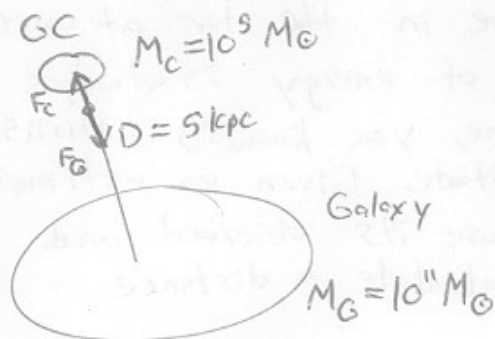 GC
M_C = 10^5 M⊙
F_C
D = 5 kpc
F_G
Galaxy
M_G = 10^11 M⊙